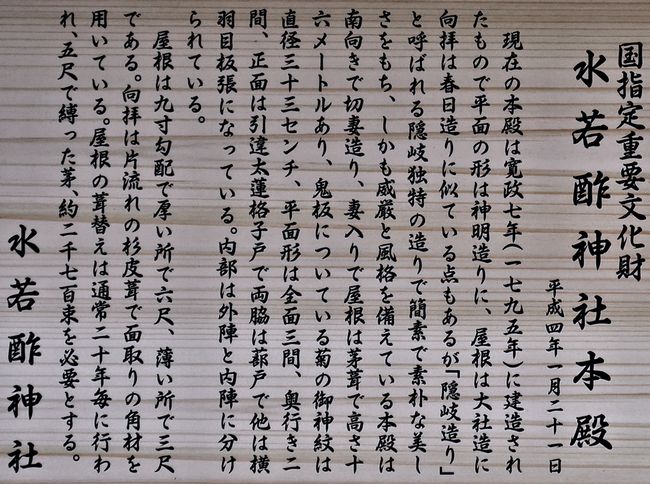 国指定重要文化財
水若酢神社本殿
平成四年一月二十一日
現在の本殿は寛政七年(一七九五年)に建造され
たもので平面の形は神明造りに、屋根は大社造に
向拝は春日造りに似ている点もあるが「隠岐造り」
と呼ばれる隠岐独特の造りで簡素で素朴な美し
さをもち、しかも威厳と風格を備えている本殿は
南向きで切妻造り、妻入りで屋根は茅葺で高さ十
六メートルあり、鬼板についている菊の御神紋は
直径三十三センチ、平面形は全面三間、奥行き二
間、正面は引違太蓮格子戸で両脇は蔀戸で他は横
羽目板張になっている。内部は外陣と内陣に分け
られている。
屋根は九寸勾配で厚い所で六尺、薄い所で三尺
である。向拝は片流れの杉皮葺で面取りの角材を
用いている。屋根の葺替えは通常二十年毎に行わ
れ、五尺で縛った茅、約二千七百束を必要とする。
水若酢神社